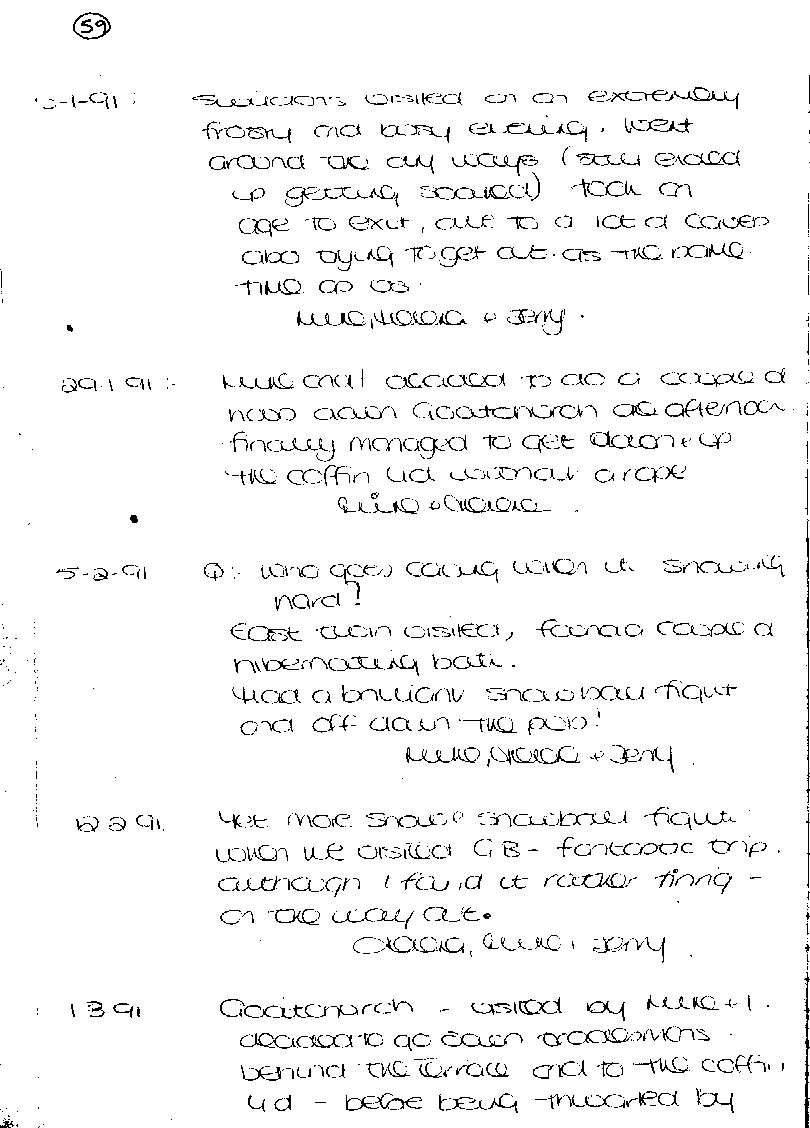 59
-1-91 : visited on an extremely
frosty and busy evening. Went
around the dry ways (still ended
up getting soaked) took an
age to exit, due to a lot of cavers
also trying to get out as the same
time as us.
+ Jerry.
29.1.91 :- and I decided to do a couple of
hours down Goatchurch one afternoon
finally managed to get down + up
the coffin lid without a rope
5-2-91 Q:- Who goes caving when it snowing
hard?
East twin visited, found a couple of
hibernating bats.
Had a brilliant snowball fight
and off down the pub!
+ Jerry.
12 2 91. Yet more snow & snowball fight
when we visited GB - fantastic trip.
although I found it rather tiring -
on the way out.
Jerry.
1 3 91 Goatchurch - visited by + I.
decided to go down
behind the Terrace and to the coffin
lid - before being thwarted by